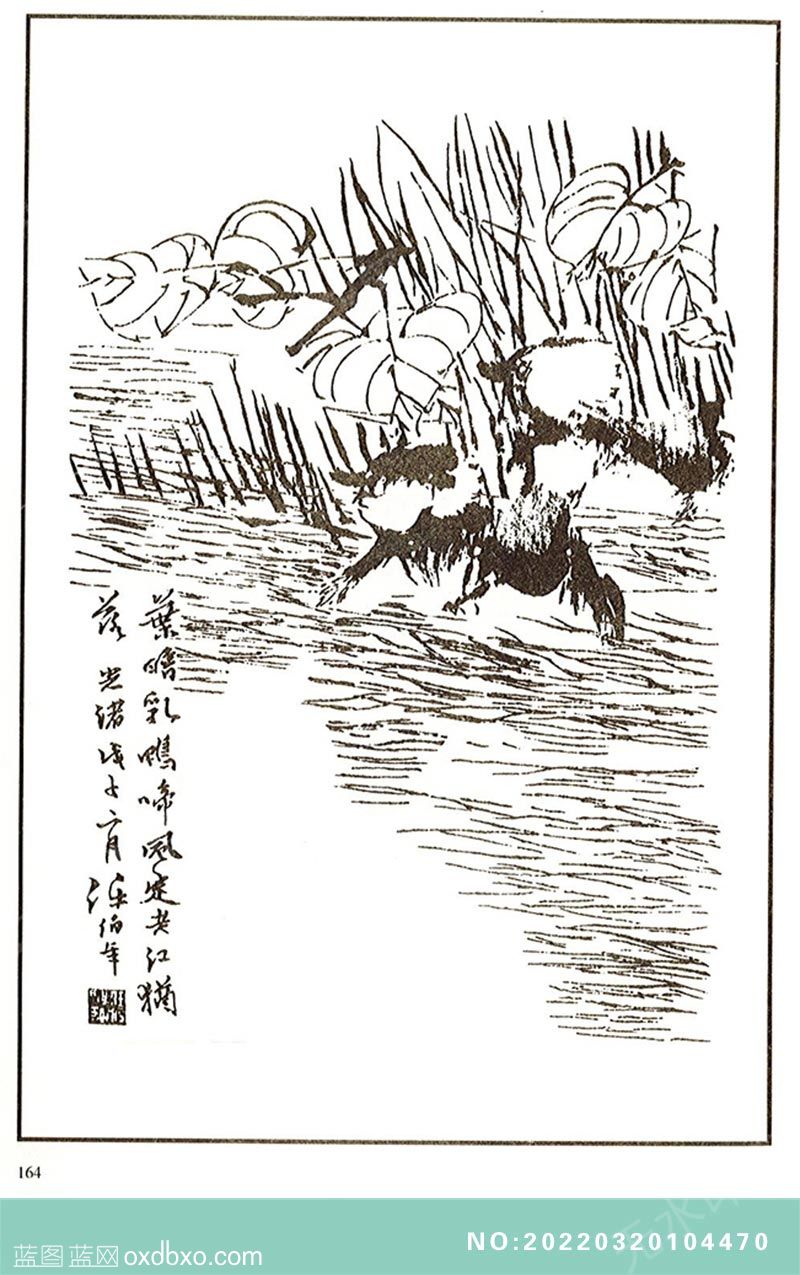 葉暗乳鴉啼風定老江猶
落 光緒戊子六月 任伯年
164
蓝图蓝网 oxdbxo.com
NO:20220320104470